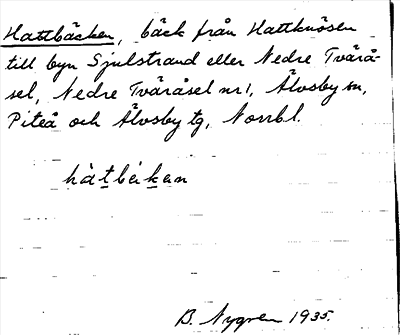 Hattbäcken, bäck från Hattknösen
till byn Sjulstrand eller Nedre Tvärå-
sel, Nedre Tväråsel nr 1, Älvsby sn,
Piteå och Älvsby tg, Norrb l.
hàtbèkan
B. Nygren 1935.